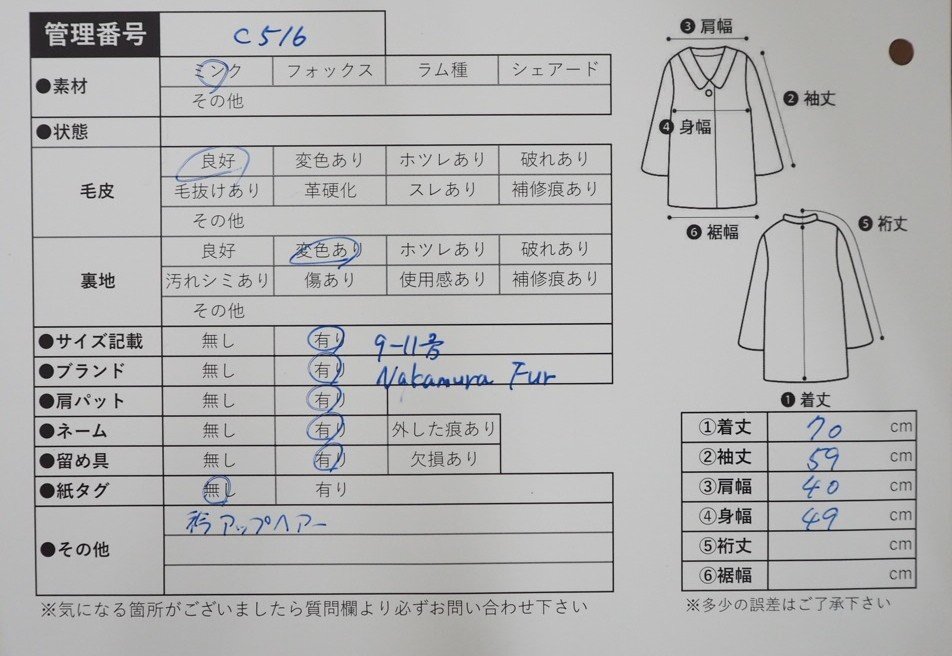 管理番号 C516
●素材 ミンク フォックス ラム種 シェアード
その他
●状態
毛皮 良好 変色あり ホツレあり 破れあり
毛抜けあり 革硬化 スレあり 補修痕あり
その他
裏地 良好 変色あり ホツレあり 破れあり
汚れシミあり 傷あり 使用感あり 補修痕あり
その他
●サイズ記載 無し 有り 9-11号
●ブランド 無し 有り Nakamura Fur
●肩パット 無し 有り
●ネーム 無し 有り 外した痕あり
●留め具 無し 有り 欠損あり
●紙タグ 無し 有り
●その他 衿アップヘアー
※気になる箇所がございましたら質問欄より必ずお問い合わせ下さい
❸肩幅
❷袖丈
❹身幅
❻裾幅
❺裄丈
❶着丈
①着丈 70 cm
②袖丈 59 cm
③肩幅 40 cm
④身幅 49 cm
⑤裄丈 cm
⑥裾幅 cm
※多少の誤差はご了承下さい